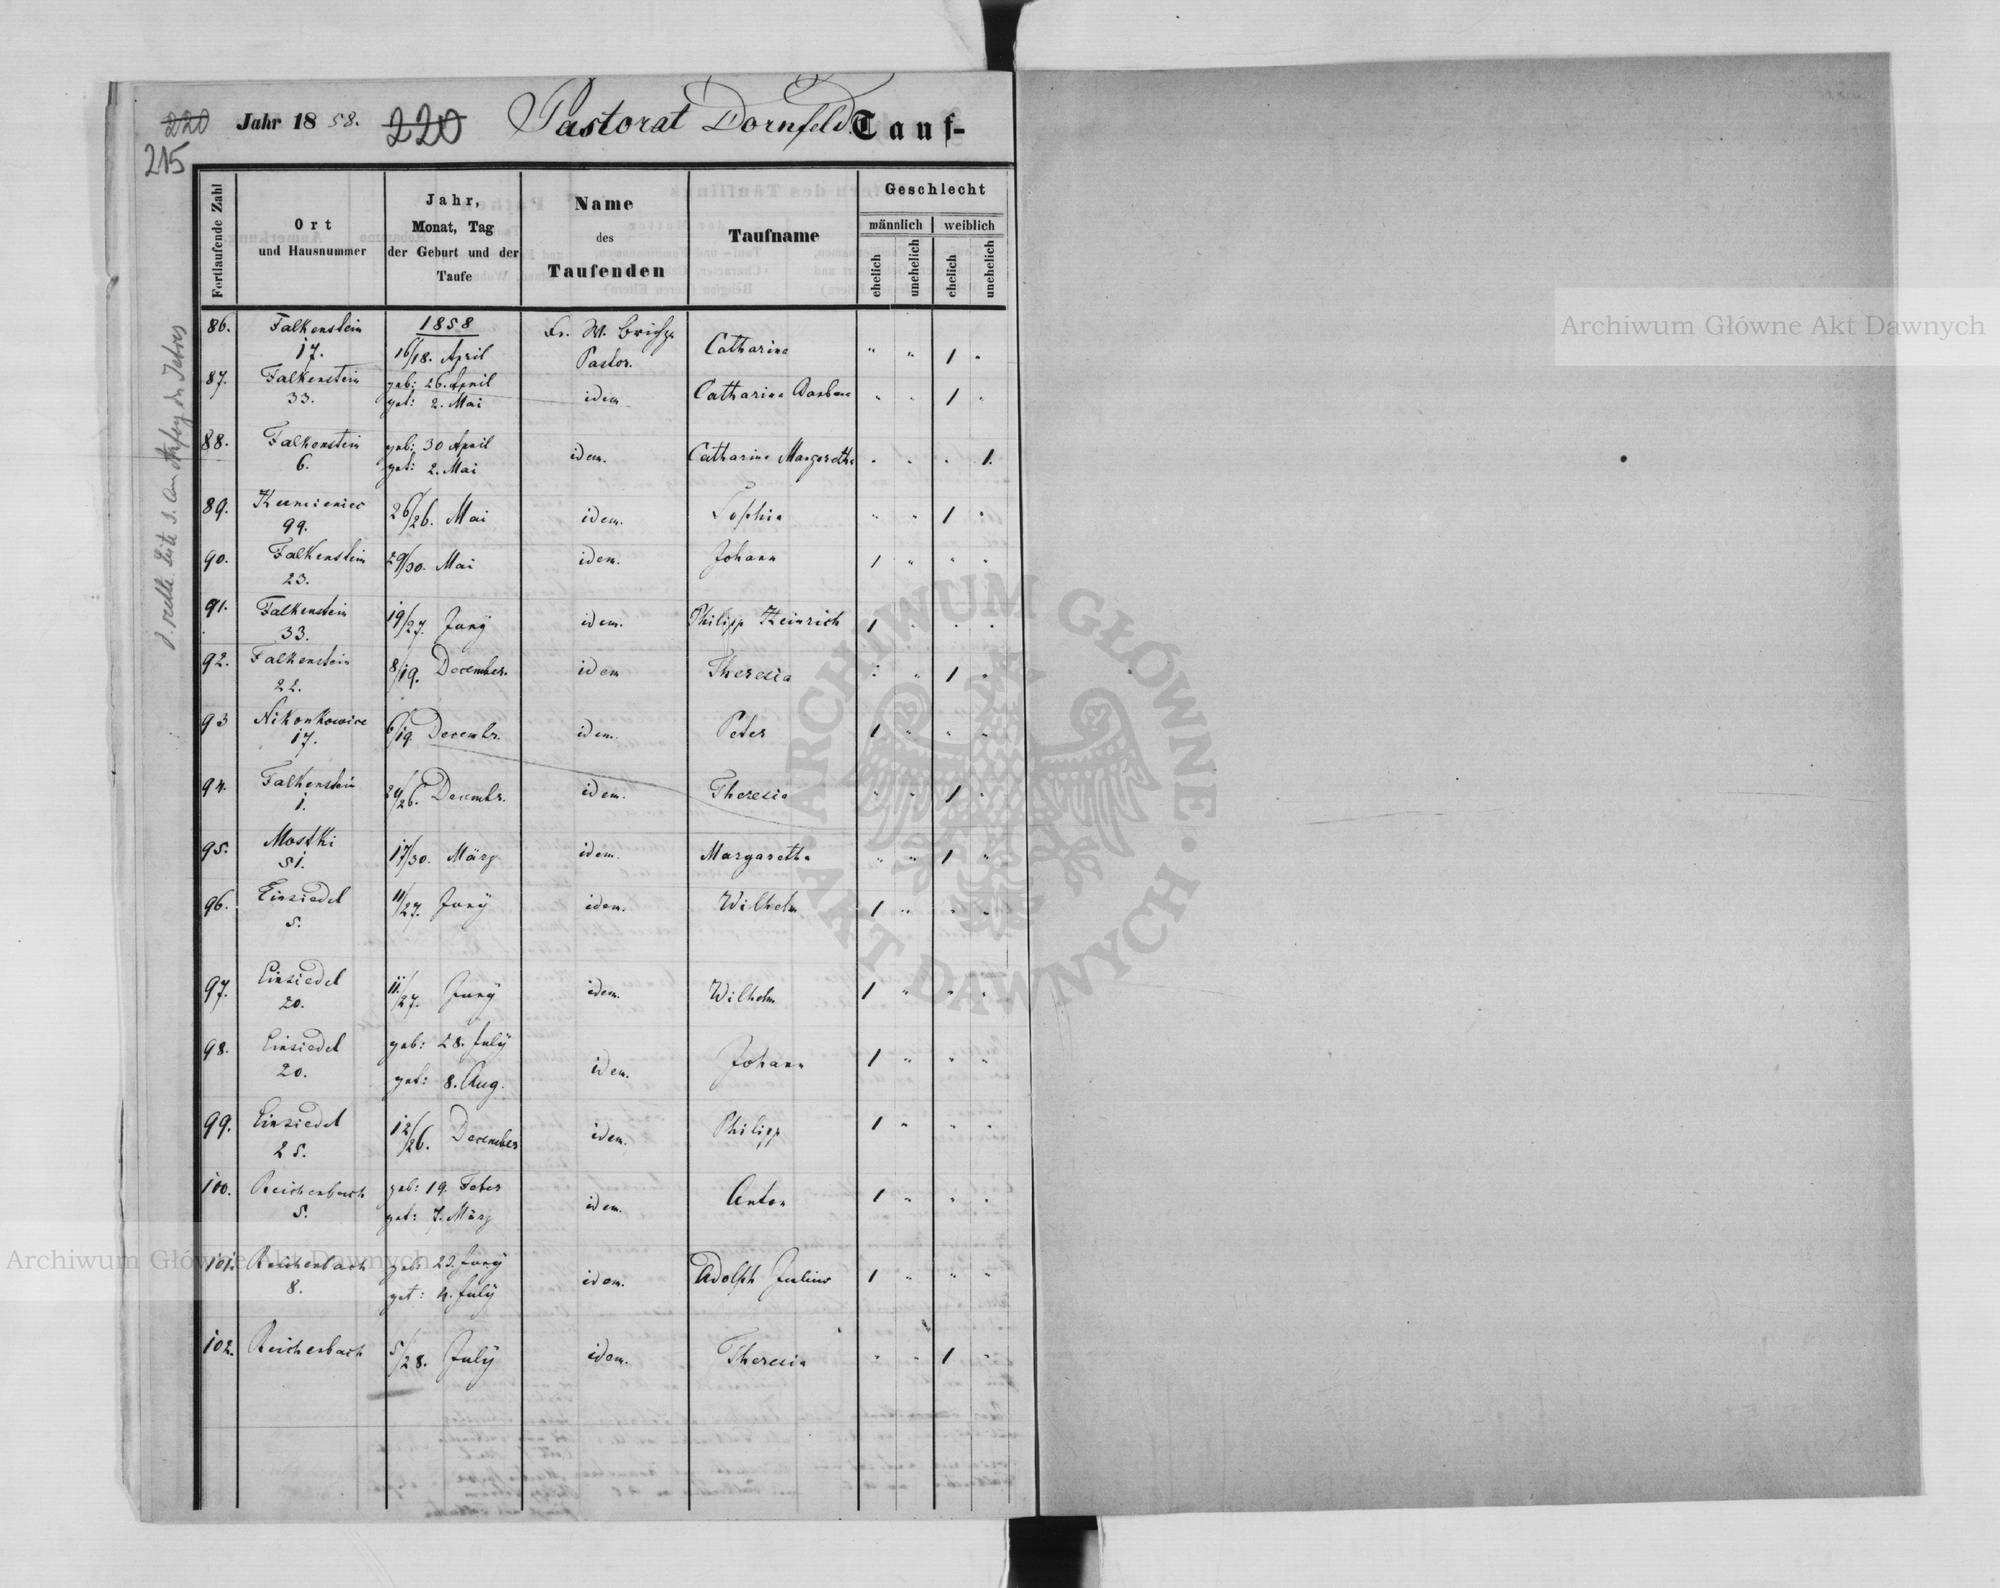 220 Jahr 1858. 220 Pastorat Dornfeld Tauf-
215
Fortlaufende Zahl
Ort
und Hausnummer
Jahr,
Monat, Tag
der Geburt und der
Taufe
Name
des
Taufenden
Taufname
Geschlecht
männlich weiblich
ehelich unehelich ehelich unehelich
86. Falkenstein 1858 Fr. W.
17. 16/18. April Pastor. Catharina " " 1 "
87. Falkenstein geb: 26. April
33. get: 2. Mai idem Catharina Barbara " " 1 "
88. Falkenstein geb: 30 April
6. get: 2. Mai idem. Catharina Margaretha " " " 1.
89. Humieniec
99. 26/26. Mai idem. Sophia " " 1 "
90. Falkenstein 29/30. Mai idem. Johann 1 " " "
23.
91. Falkenstein 19/27. Juny idem. Philipp Heinrich 1 " " "
33.
92. Falkenstein 8/19. December. idem Theresia " " 1 "
22.
93 Nikonkowice 6/19 Decembr. idem. Peter 1 " " "
17.
94. Falkenstein 24/26. Decembr. idem. Theresia " " 1 "
1.
95. Mostki 17/30. März idem. Margaretha " " 1 "
51.
96. Einsiedel 11/27. Juny idem. Wilhelm 1 " " "
5.
97. Einsiedel 11/27. Juny idem. Wilhelm 1 " " "
20.
98. Einsiedel geb: 28. July
20. get: 8. Aug. idem. Johann 1 " " "
99. Einsiedel 12/26. December idem. Philipp 1 " " "
25.
100. Reichenbach geb: 19. Feber
5. get: 7. März idem. Anton 1 " " "
101. Reichenbach geb: 23. Juny
8. get: 4. July idem. Adolph Julius 1 " " "
102. Reichenbach 5/28. July idem. Theresia " " 1 "
Archiwum Główne Akt Dawnych
Archiwum Główne Akt Dawnych
ARCHIWUM GŁÓWNE · AKT DAWNYCH ·